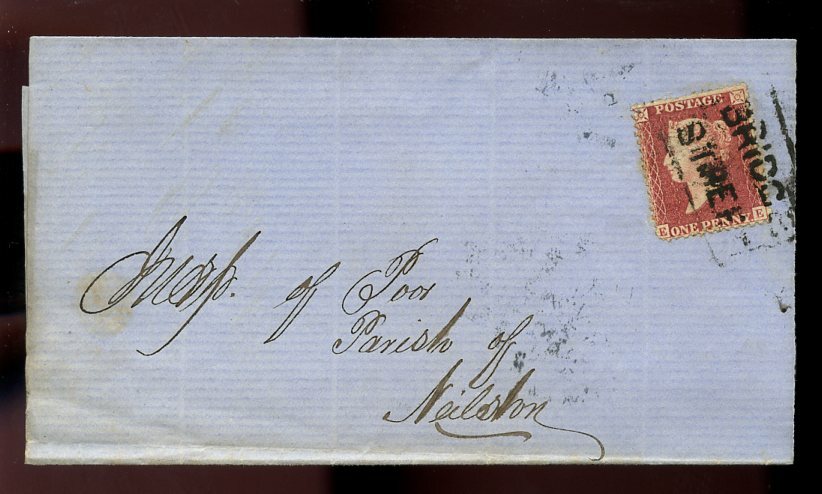 POSTAGE
BRIDGE
STREET
E ONE PENNY E
Insp. of Poor
Parish of
Neilston